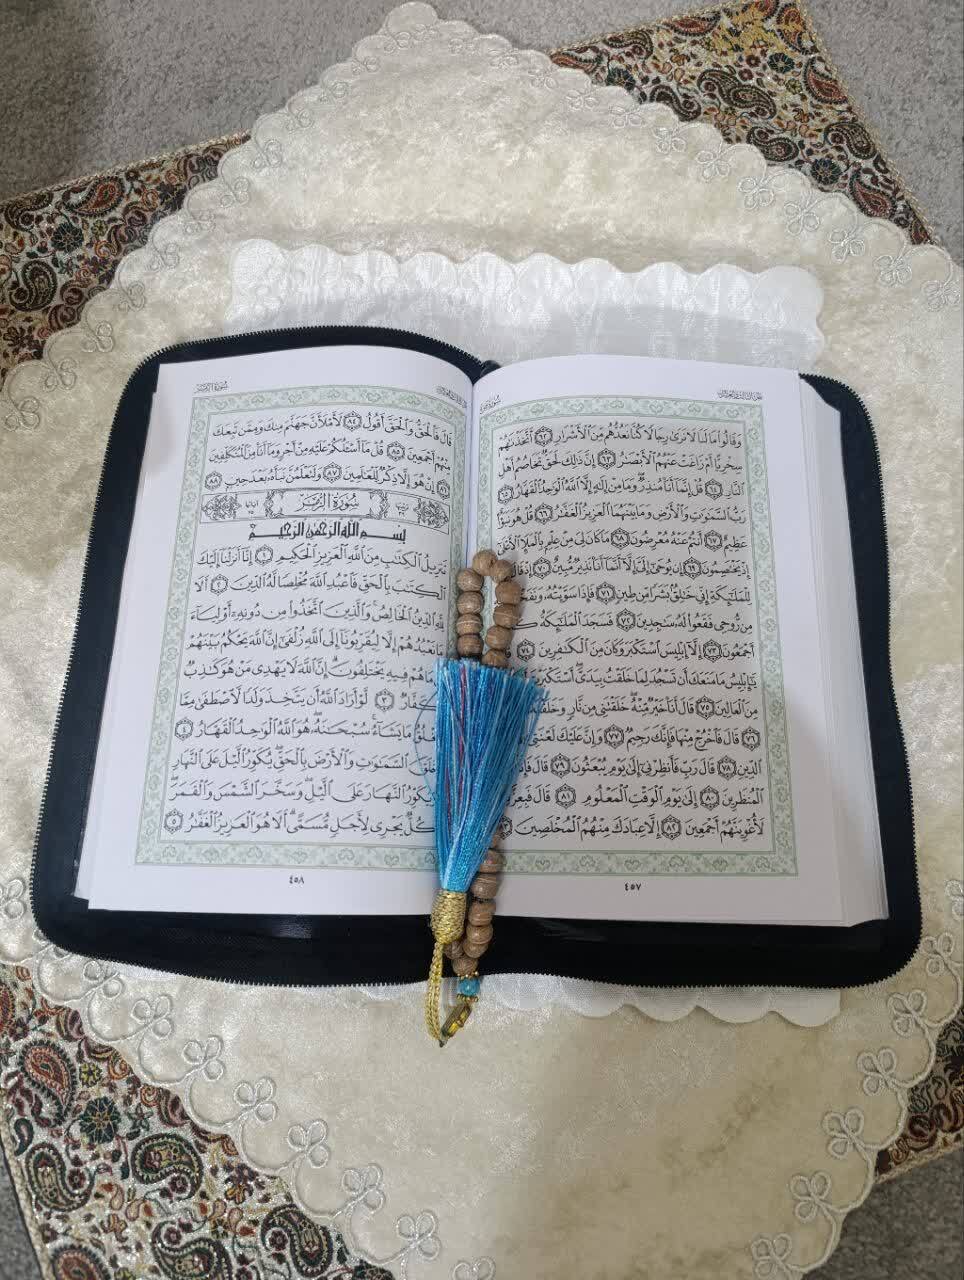 وَقَالُوا۟ مَا لَنَا لَا نَرَىٰ رِجَالًا كُنَّا نَعُدُّهُم مِّنَ ٱلْأَشْرَارِ ٦٢ أَتَّخَذْنَـٰهُمْ
سِخْرِيًّا أَمْ زَاغَتْ عَنْهُمُ ٱلْأَبْصَـٰرُ ٦٣ إِنَّ ذَٰلِكَ لَحَقٌّ تَخَاصُمُ أَهْلِ
ٱلنَّارِ ٦٤ قُلْ إِنَّمَآ أَنَا۠ مُنذِرٌ وَمَا مِنْ إِلَـٰهٍ إِلَّا ٱللَّهُ ٱلْوَٰحِدُ ٱلْقَهَّارُ ٦٥
رَبُّ ٱلسَّمَـٰوَٰتِ وَٱلْأَرْضِ وَمَا بَيْنَهُمَا ٱلْعَزِيزُ ٱلْغَفَّـٰرُ ٦٦ قُلْ هُوَ نَبَؤٌا۟
عَظِيمٌ ٦٧ أَنتُمْ عَنْهُ مُعْرِضُونَ ٦٨ مَا كَانَ لِىَ مِنْ عِلْمٍۭ بِٱلْمَلَإِ ٱلْأَعْلَىٰٓ
إِذْ يَخْتَصِمُونَ ٦٩ إِن يُوحَىٰٓ إِلَىَّ إِلَّآ أَنَّمَآ أَنَا۠ نَذِيرٌ مُّبِينٌ ٧٠ إِذْ قَالَ
لِلْمَلَـٰٓئِكَةِ إِنِّى خَـٰلِقٌۢ بَشَرًا مِّن طِينٍ ٧١ فَإِذَا سَوَّيْتُهُۥ وَنَفَخْتُ
مِن رُّوحِى فَقَعُوا۟ لَهُۥ سَـٰجِدِينَ ٧٢ فَسَجَدَ ٱلْمَلَـٰٓئِكَةُ
أَجْمَعُونَ ٧٣ إِلَّآ إِبْلِيسَ ٱسْتَكْبَرَ وَكَانَ مِنَ ٱلْكَـٰفِرِينَ ٧٤
يَـٰٓإِبْلِيسُ مَا مَنَعَكَ أَن تَسْجُدَ لِمَا خَلَقْتُ بِيَدَىَّ أَسْتَكْبَرْتَ
مِنَ ٱلْعَالِينَ ٧٥ قَالَ أَنَا۠ خَيْرٌ مِّنْهُ خَلَقْتَنِى مِن نَّارٍ وَخَلَقْتَهُۥ
٧٦ قَالَ فَٱخْرُجْ مِنْهَا فَإِنَّكَ رَجِيمٌ ٧٧ وَإِنَّ عَلَيْكَ لَعْنَتِىٓ
ٱلدِّينِ ٧٨ قَالَ رَبِّ فَأَنظِرْنِىٓ إِلَىٰ يَوْمِ يُبْعَثُونَ ٧٩ قَالَ فَإِنَّكَ
ٱلْمُنظَرِينَ ٨٠ إِلَىٰ يَوْمِ ٱلْوَقْتِ ٱلْمَعْلُومِ ٨١ قَالَ فَبِعِزَّتِكَ
لَأُغْوِيَنَّهُمْ أَجْمَعِينَ ٨٢ إِلَّا عِبَادَكَ مِنْهُمُ ٱلْمُخْلَصِينَ ٨٣
٤٥٧
سُورَةُ الزُّمَرِ
قَالَ فَٱلْحَقُّ وَٱلْحَقَّ أَقُولُ ٨٤ لَأَمْلَأَنَّ جَهَنَّمَ مِنكَ وَمِمَّن تَبِعَكَ
مِنْهُمْ أَجْمَعِينَ ٨٥ قُلْ مَآ أَسْـَٔلُكُمْ عَلَيْهِ مِنْ أَجْرٍ وَمَآ أَنَا۠ مِنَ ٱلْمُتَكَلِّفِينَ
٨٦ إِنْ هُوَ إِلَّا ذِكْرٌ لِّلْعَـٰلَمِينَ ٨٧ وَلَتَعْلَمُنَّ نَبَأَهُۥ بَعْدَ حِينٍۭ ٨٨
سُورَةُ الزُّمَرِ
بِسْمِ ٱللَّهِ ٱلرَّحْمَـٰنِ ٱلرَّحِيمِ
تَنزِيلُ ٱلْكِتَـٰبِ مِنَ ٱللَّهِ ٱلْعَزِيزِ ٱلْحَكِيمِ ١ إِنَّآ أَنزَلْنَآ إِلَيْكَ
ٱلْكِتَـٰبَ بِٱلْحَقِّ فَٱعْبُدِ ٱللَّهَ مُخْلِصًا لَّهُ ٱلدِّينَ ٢ أَلَا
لِلَّهِ ٱلدِّينُ ٱلْخَالِصُ وَٱلَّذِينَ ٱتَّخَذُوا۟ مِن دُونِهِۦٓ أَوْلِيَآءَ
مَا نَعْبُدُهُمْ إِلَّا لِيُقَرِّبُونَآ إِلَى ٱللَّهِ زُلْفَىٰٓ إِنَّ ٱللَّهَ يَحْكُمُ بَيْنَهُمْ
مَا هُمْ فِيهِ يَخْتَلِفُونَ إِنَّ ٱللَّهَ لَا يَهْدِى مَنْ هُوَ كَـٰذِبٌ
كَفَّارٌ ٣ لَّوْ أَرَادَ ٱللَّهُ أَن يَتَّخِذَ وَلَدًا لَّٱصْطَفَىٰ مِمَّا
يَخْلُقُ مَا يَشَآءُ سُبْحَـٰنَهُۥ هُوَ ٱللَّهُ ٱلْوَٰحِدُ ٱلْقَهَّارُ ٤
خَلَقَ ٱلسَّمَـٰوَٰتِ وَٱلْأَرْضَ بِٱلْحَقِّ يُكَوِّرُ ٱلَّيْلَ عَلَى ٱلنَّهَارِ
وَيُكَوِّرُ ٱلنَّهَارَ عَلَى ٱلَّيْلِ وَسَخَّرَ ٱلشَّمْسَ وَٱلْقَمَرَ
كُلٌّ يَجْرِى لِأَجَلٍ مُّسَمًّى أَلَا هُوَ ٱلْعَزِيزُ ٱلْغَفَّـٰرُ ٥
٤٥٨